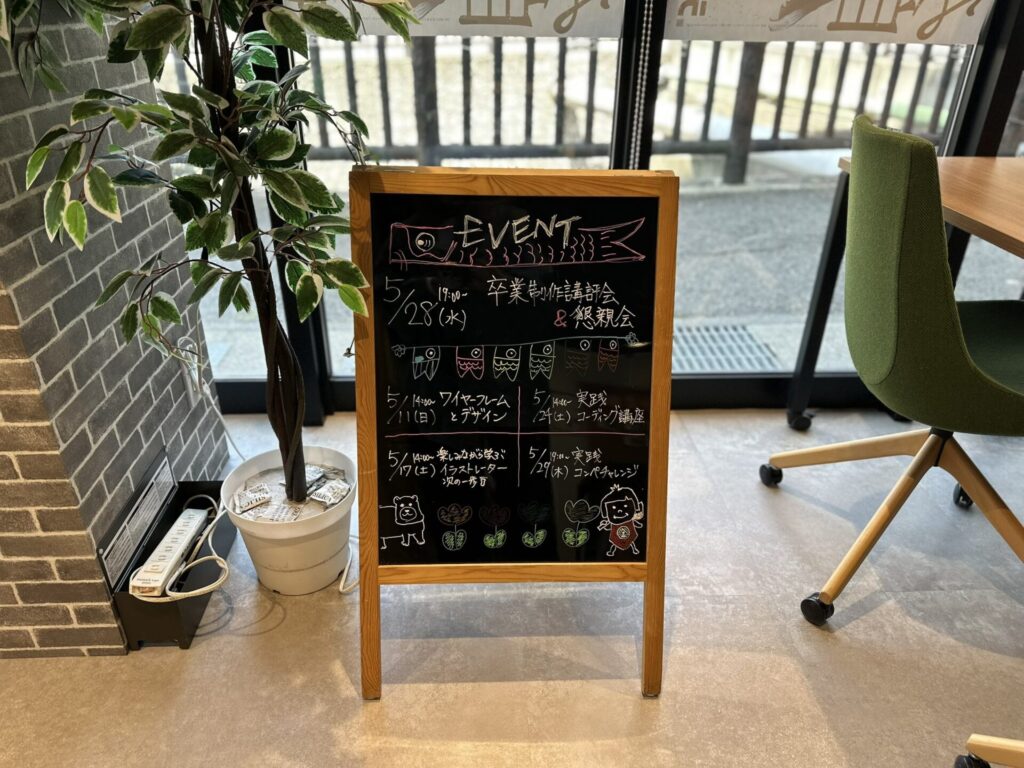 EVENT
5/28 19:00~ 卒業制作講評会
(水) & 懇親会
5/11 14:00~ ワイヤーフーム
(日) とデザイン
5/24 14:00~ 実践
(土) コーディング講座
5/17 14:00~ 楽しみながら学ぶ
(土) イラストレーター
次の一歩目
5/29 19:00~ 実践
(木) コンペチャレンジ